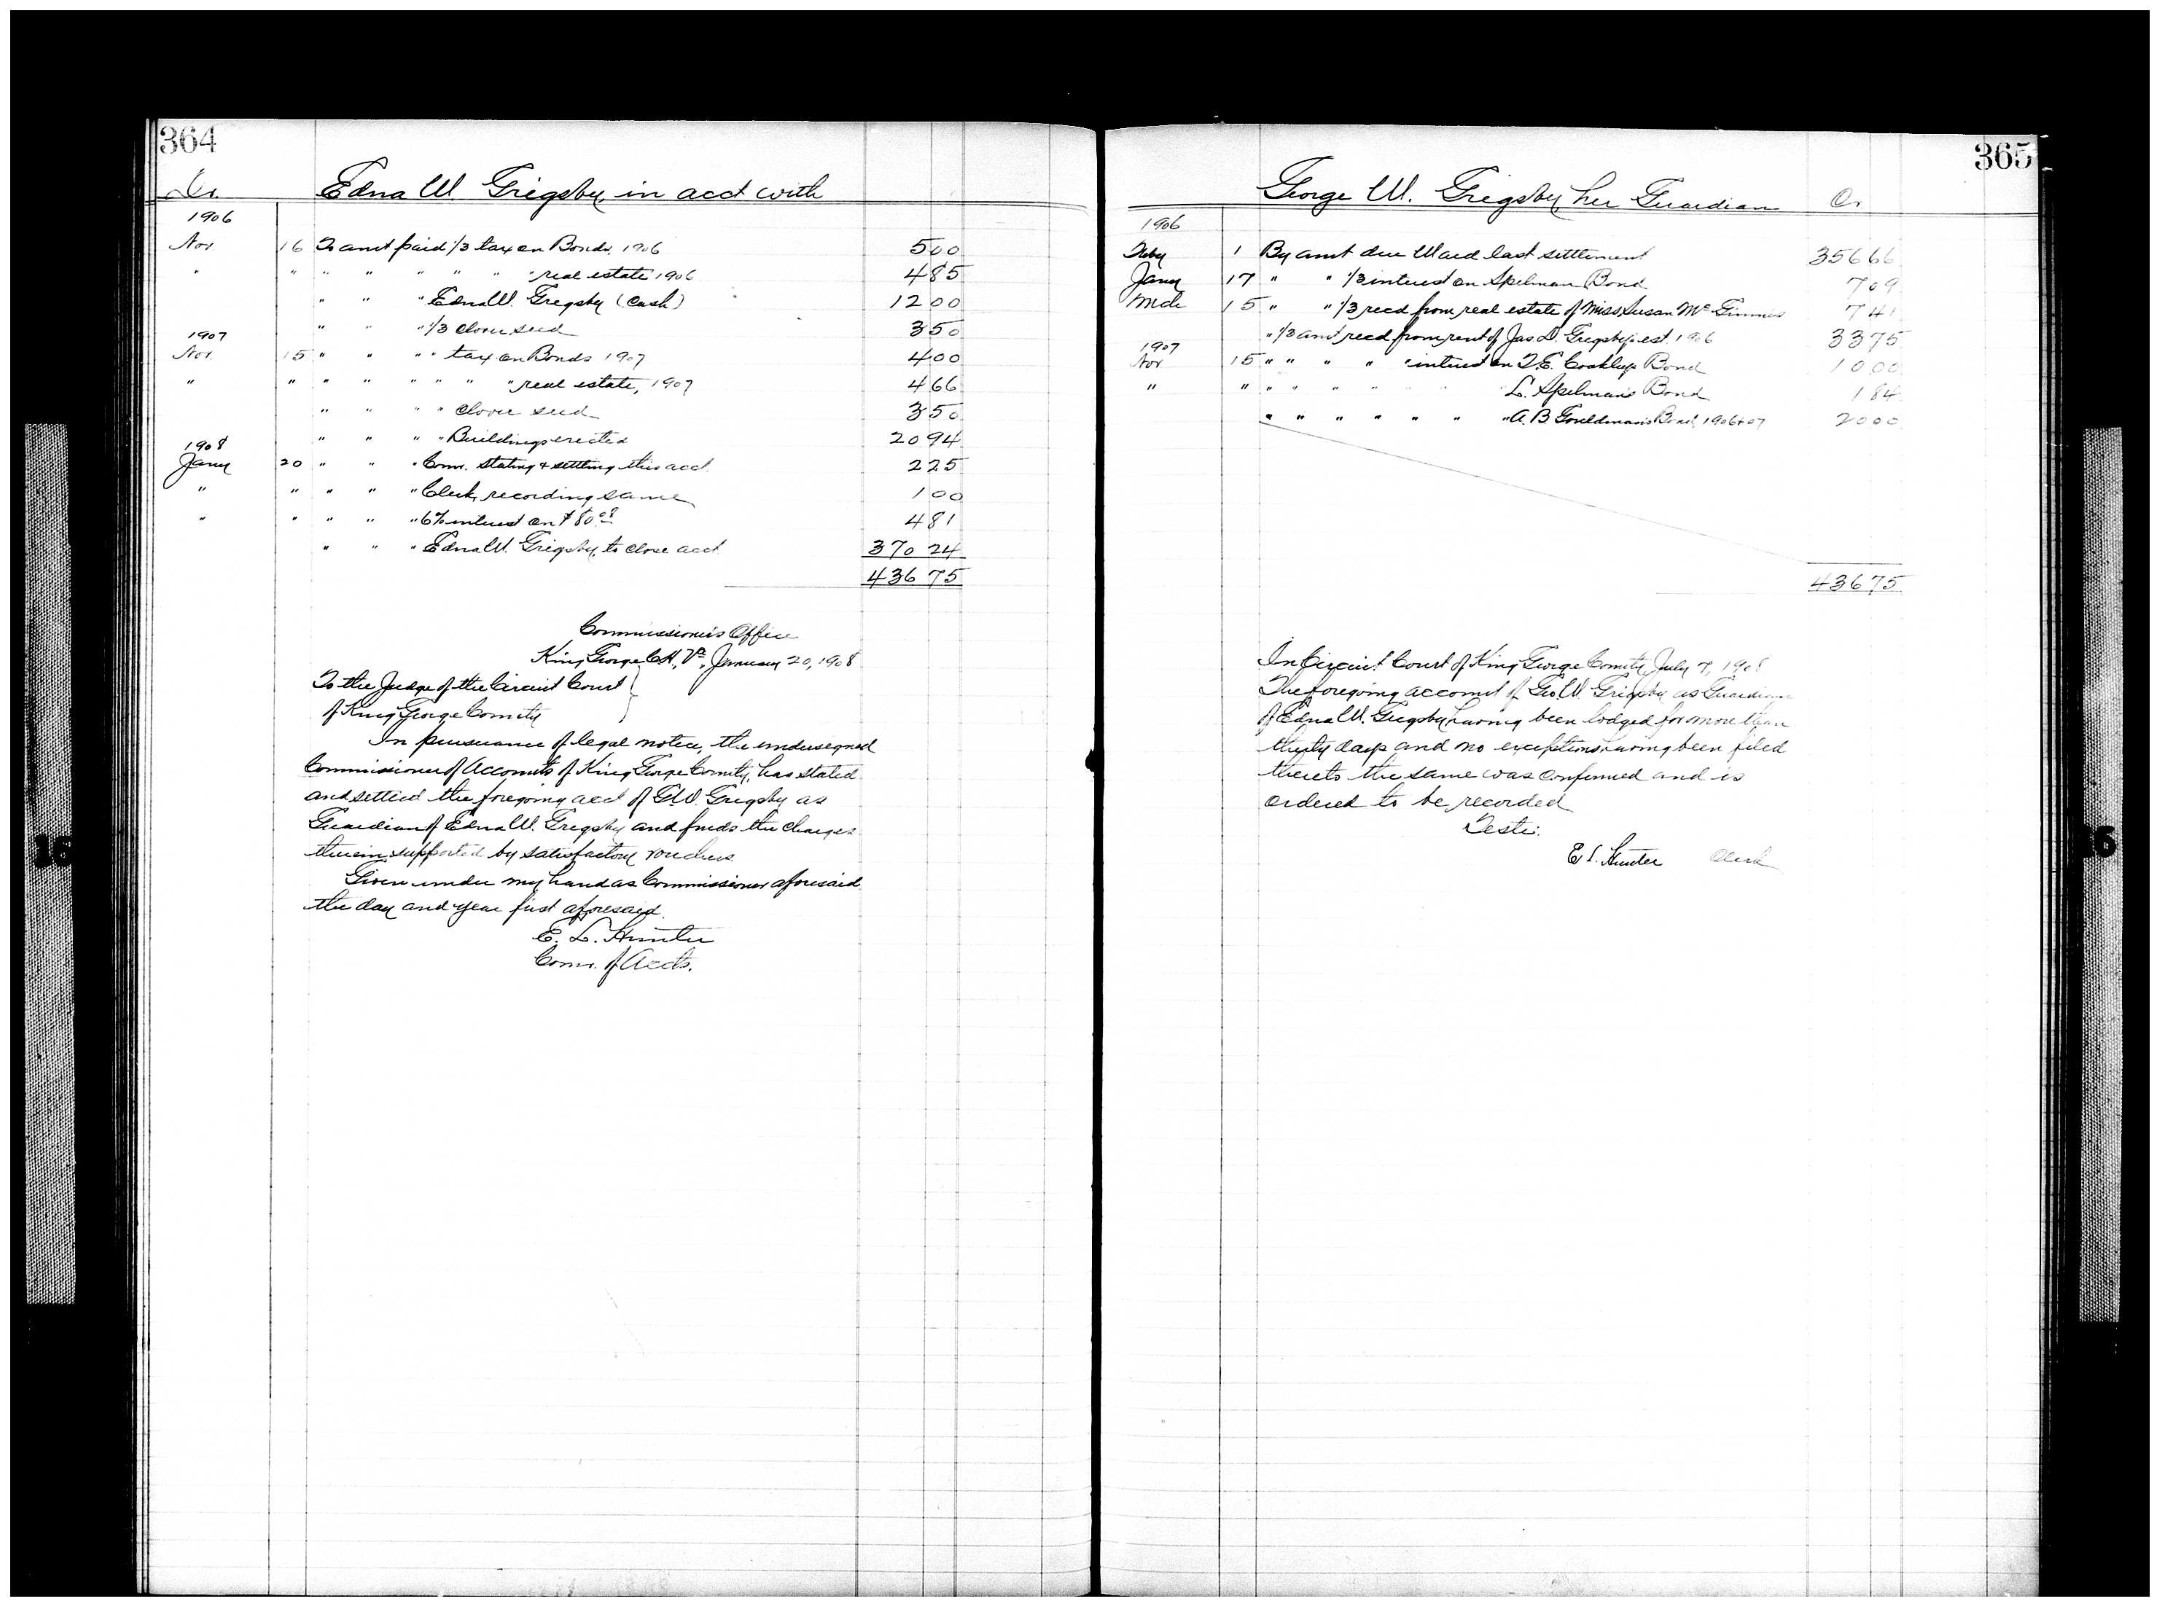 364
Dr. Edna W. Grigsby, in acct with
1906
Nov 16 To amt paid 1/3 tax on Bonds 1906 5 00
" " " " " " " " real estate 1906 4 85
" " " Edna W. Grigsby (Cash) 12 00
" " " 1/3 clover seed 3 50
1907
Nov. 15 " " " " tax on Bonds 1907 4 00
" " " " " " " " real estate, 1907 4 66
" " " " clover seed 3 50
" " " " Buildings erected 20 94
1908
Jany 20 " " " Comr. stating & settling this acct 2 25
" " " " " Clerk, recording same 1 00
" " " " " 6% interest on $80.08 4 81
" " " Edna W. Grigsby, to close acct 370 24
436 75
Commissioner's Office
King George C.H., Va., January 20, 1908
To the Judge of the Circuit Court
of King George County
In pursuance of legal notice, the undersigned
Commissioner of Accounts of King George County, has stated
and settled the foregoing acct of G.W. Grigsby as
Guardian of Edna W. Grigsby and finds the charges
therein supported by satisfactory vouchers
Given under my hand as Commissioner aforesaid
the day and year first aforesaid.
E. L. Hunter
Comr. of Accts.
365
George W. Grigsby, her Guardian Cr
1906
Feby 1 By amt due Ward last settlement 356 66
Jany 17 " " 1/3 interest on Spelman Bond 7 09
Mch 15 " " 1/3 recd from real estate of Miss Susan Mc 7 41
" 1/3 amt recd from rent of Jas D. Grigsby's est. 1906 33 75
1907
Nov 15 " " " " " interest on T.E. Coakley's Bond 10 00
" " " " " " " " L. Spelman's Bond 1 84
" " " " " " " A. B Gouldman's Bond, 1906 & 07 20 00
436 75
In Circuit Court of King George County, July 7, 1908
The foregoing account of Geo. W. Grigsby as Guardian
of Edna W. Grigsby having been lodged for more than
thirty days and no exceptions having been filed
thereto the same was confirmed and is
ordered to be recorded
Teste:
E L. Hunter Clerk